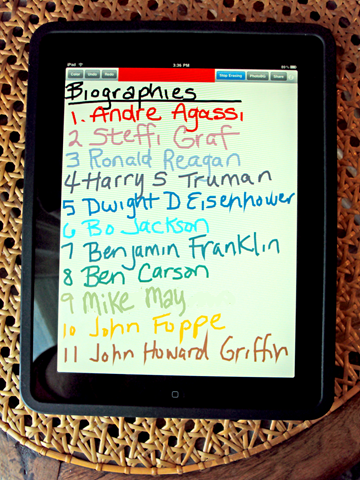 iPad
3:36 PM
Color
Undo
Redo
Stop Erasing
Photo(s)
Share
Biographies
1. Andre Agassi
2 Steffi Graf
3 Ronald Reagan
4 Harry S Truman
5 Dwight D Eisenhower
6 Bo Jackson
7 Benjamin Franklin
8 Ben Carson
9 Mike May
10 John Foppe
11 John Howard Griffin